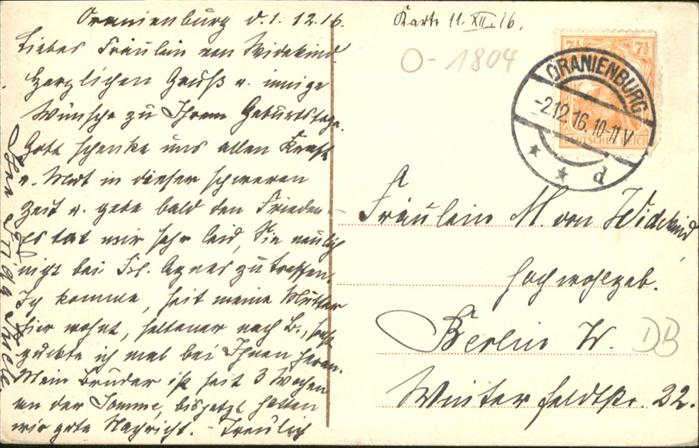 Oranienburg d. 1. 12. 16
Liebes Fräulein von Widekind
Herzlichen Gruß u. innige
Wünsche zu Ihrem Geburtstage.
Gott schenke uns allen Kraft
u. Mut in dieser schweren
Zeit u. gebe bald den Frieden.
Es tat mir sehr leid, Sie neulich
nicht bei Frl. Agnes zu treffen.
Ich komme, seit meine Mutter
hier wohnt, seltener nach B., sonst
guckte ich mal bei Ihnen heran.
Mein Bruder ist seit 3 Wochen
an der Somme, bis jetzt hatten
wir gute Nachricht. - Treulich
Ihre
Karte 11. XII. 16.
O-1804
7½ 7½
DEUTSCHES REICH
ORANIENBURG
-2.12.16.10-11V
* * d
Fräulein M. von Widekind
Hochwohlgeb.
Berlin W.
DB
Winterfeldtstr. 22.